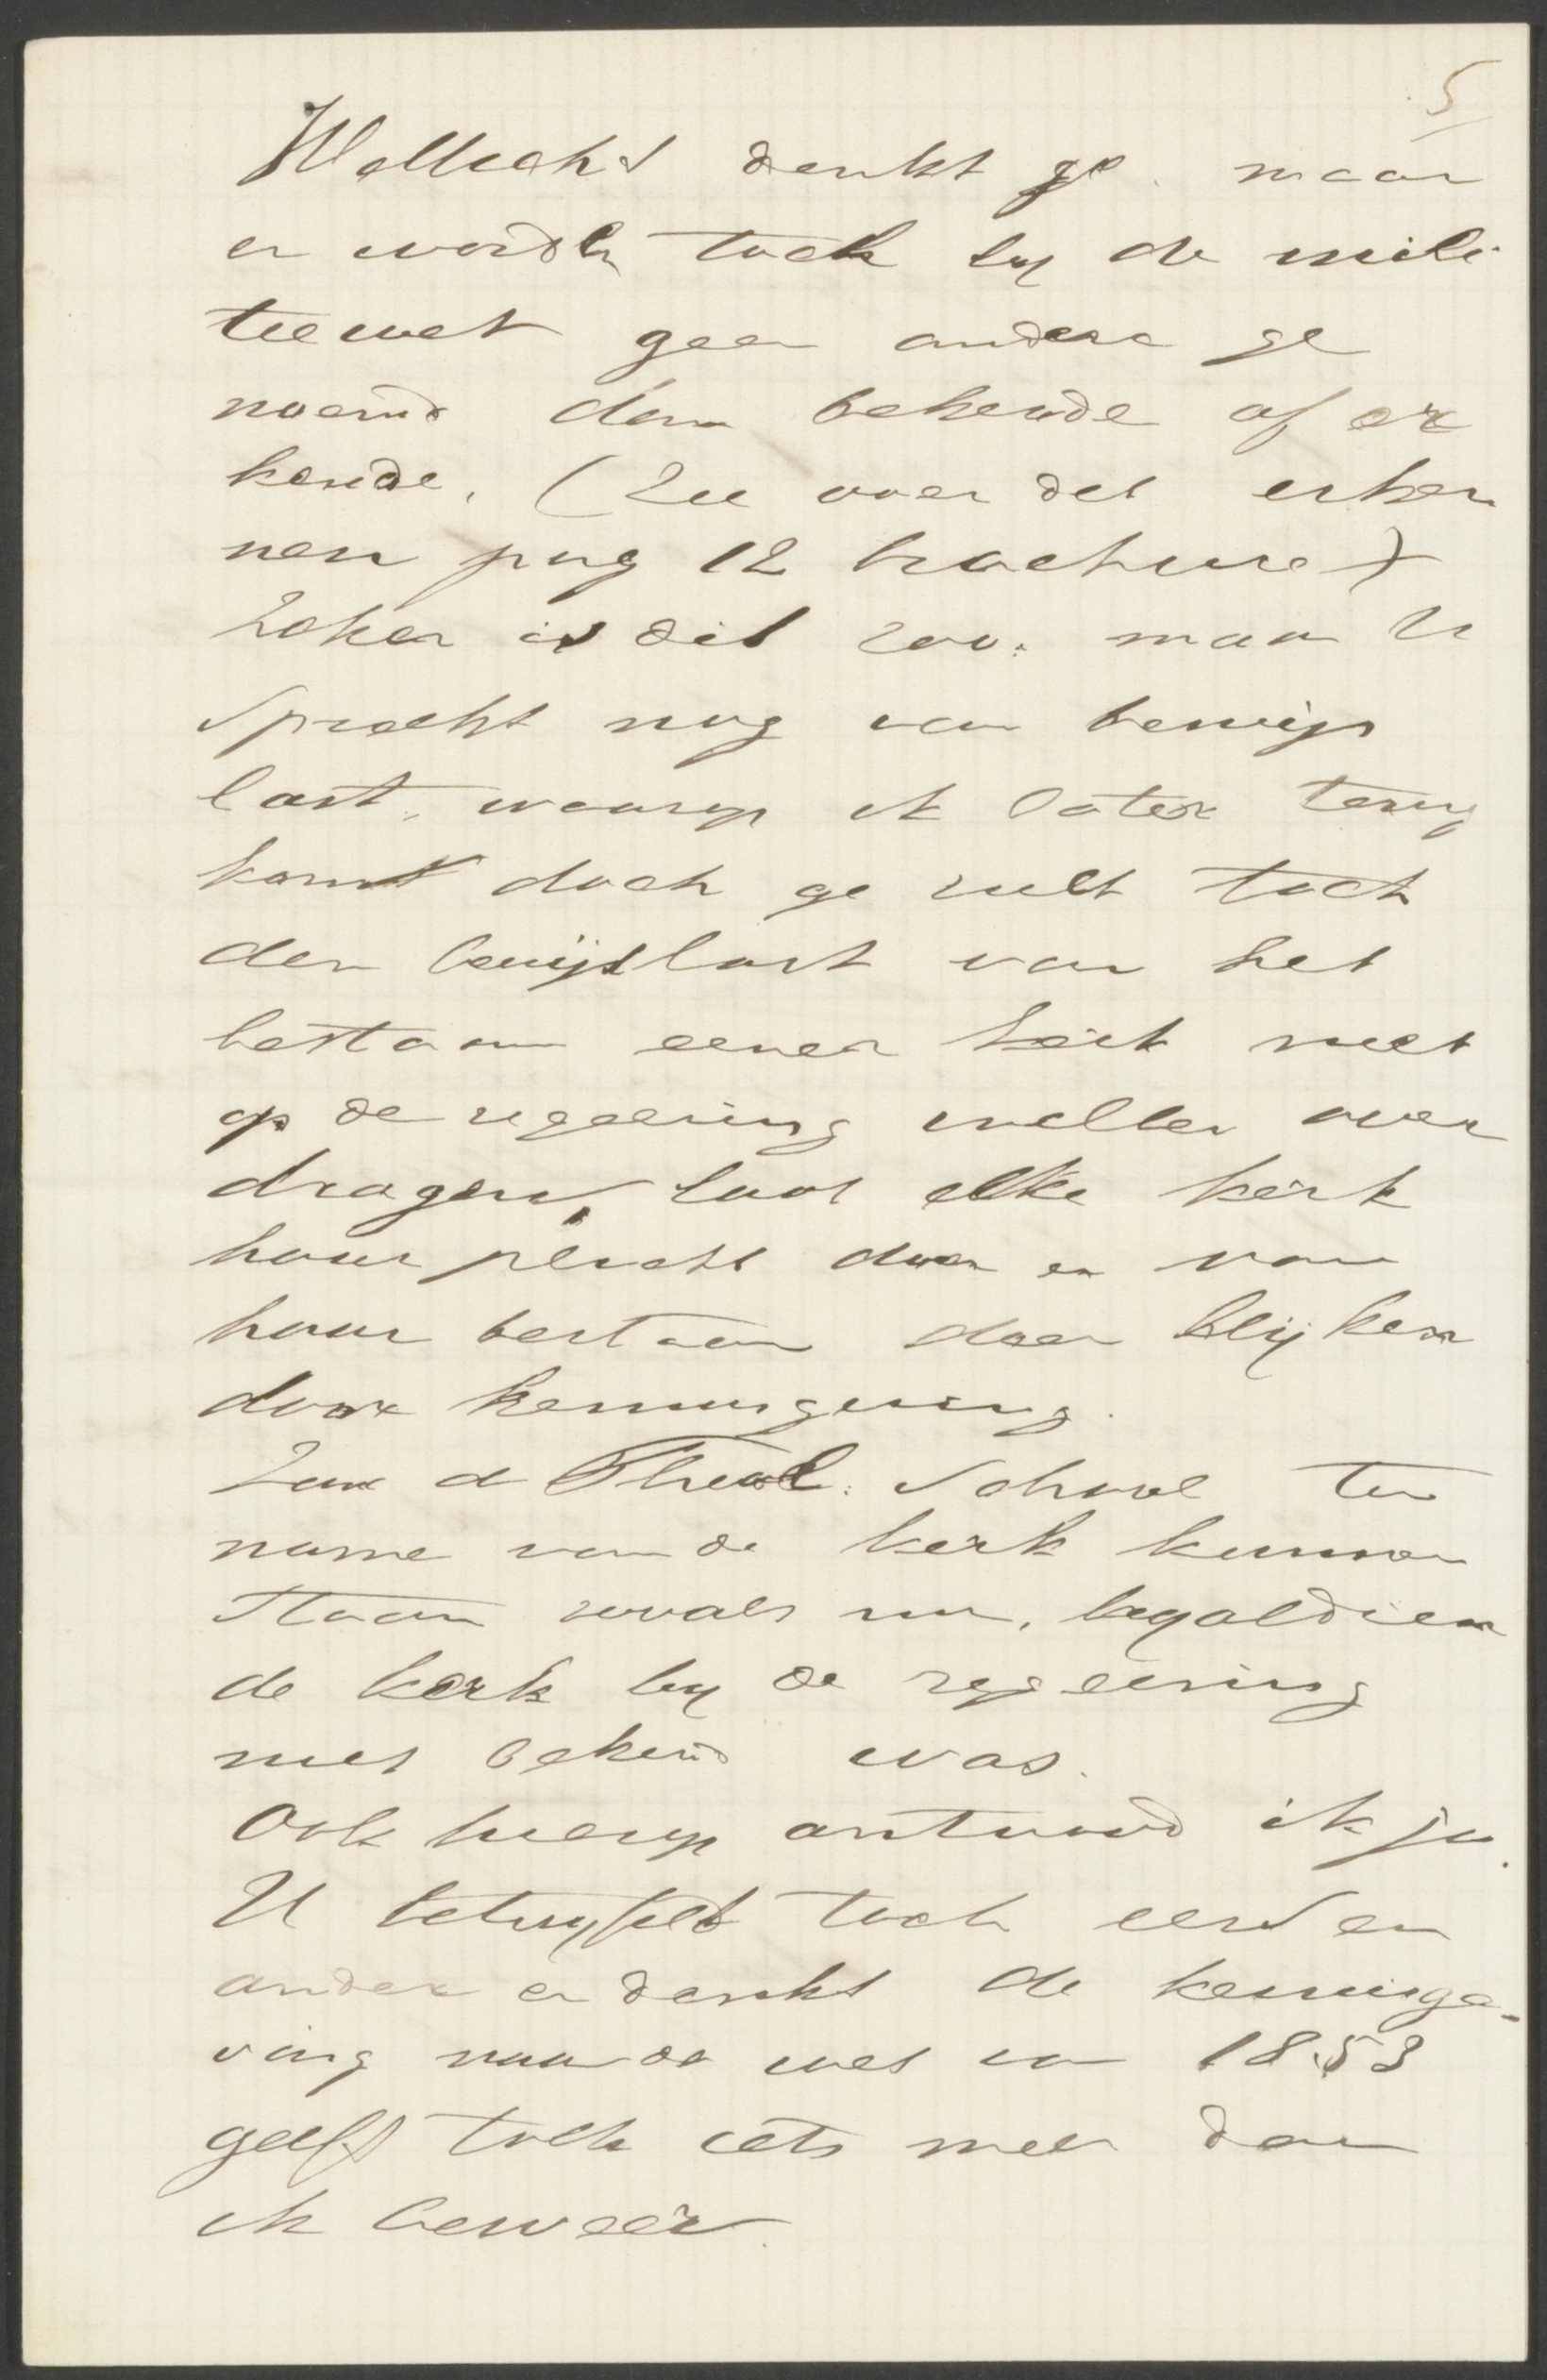 5
Wellicht denkt ge. maar
er worden toch bij de mili
tiewet geen andere ge
noemd dan bekende of er
kende. (Zie over det erken
nen pag 12 brochure)
Zeker is dit zoo. maar U
spreekt nog van bewijs
last waarop ik later terug
komt doch ge zult toch
den bewijslast van het
bestaan eener kerk niet
op de regeering willen over
dragen, laat elke kerk
haar plicht doen en van
haar bestaan doen blijken
door kennisgeving.
Zou de Theol. School ten
name van de kerk kunnen
staan zooals nu, bijaldien
de kerk bij de regeering
niet bekend was.
Ook hierop antwoord ik ja.
U betwijfeld toch een en
ander en denkt de kennisge-
ving naar de wet van 1853
geeft toch iets meer dan
ik beweer.